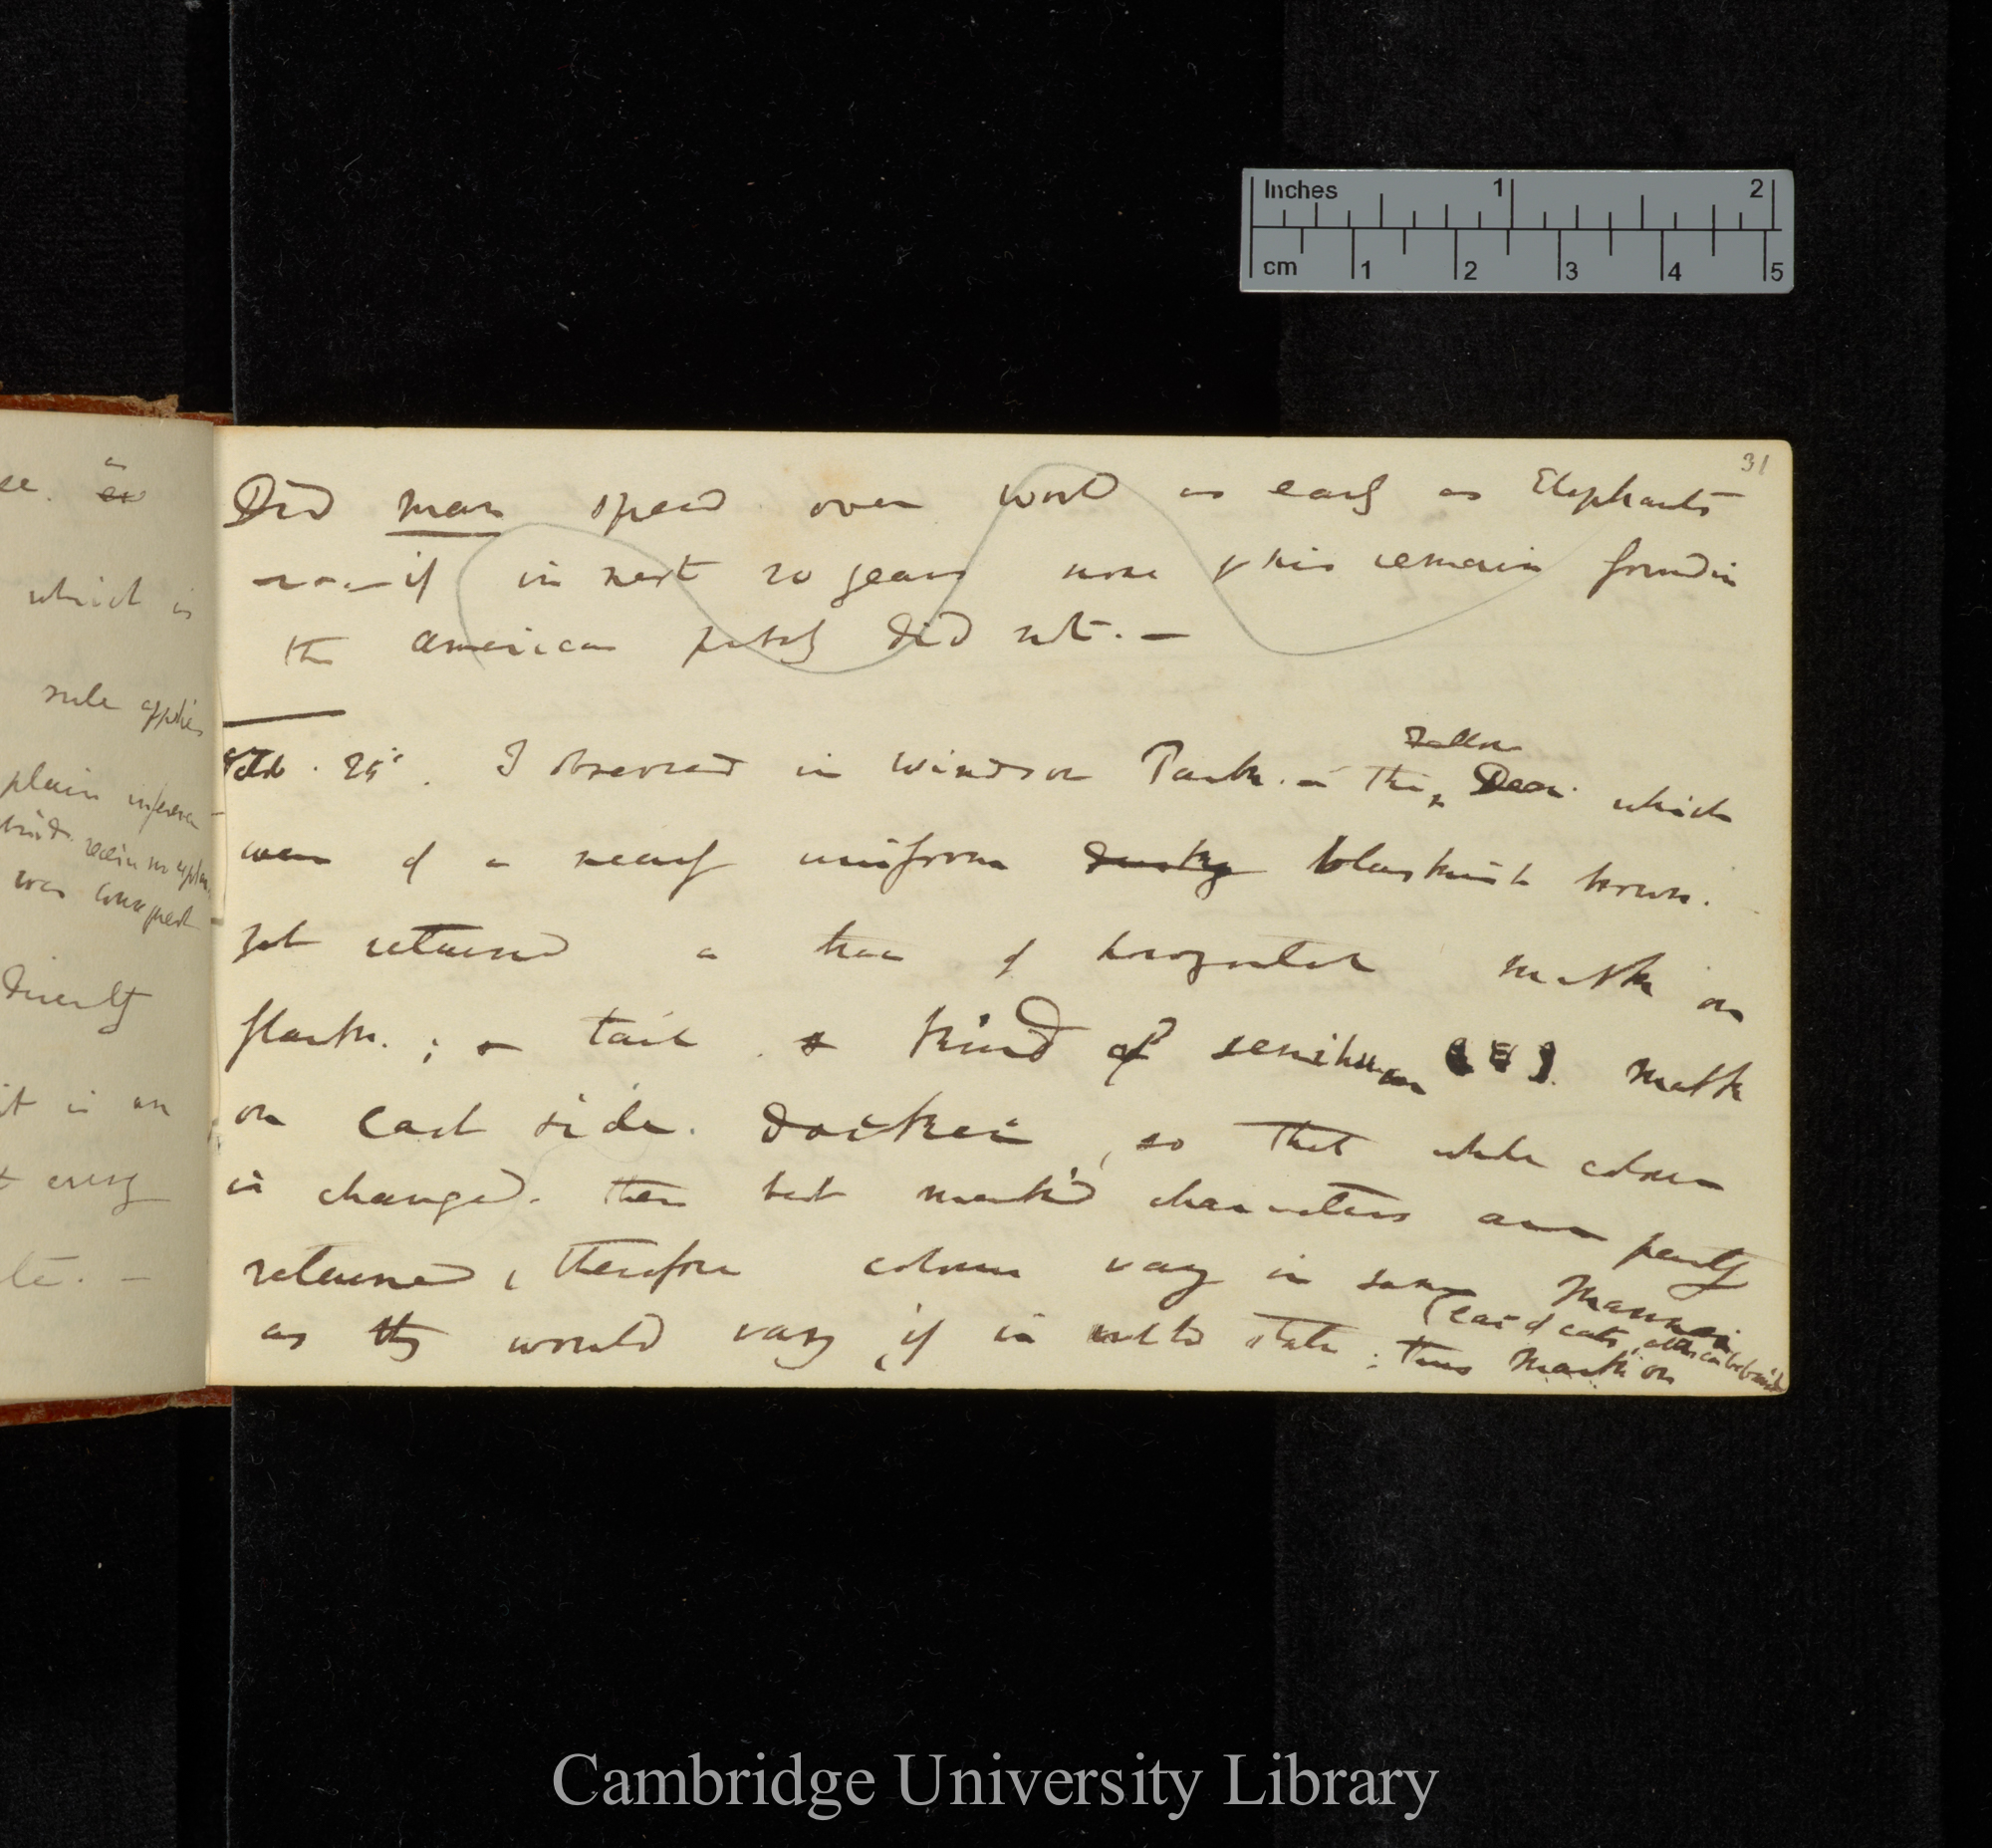 se. a
which is
rule applies
plain inference
was conquest
directly
it is an
t every
te. —
Inches 1 2
cm 1 2 3 4 5
31
Did man spread over world as early as Elephants
if in next 20 years none of his remain found in
the American probably did not. —
Feb. 25th. I observed in Windsor Park. — The Fallow Deer. which
were of a nearly uniform dusky blackish brown.
yet retained a trace of horizontal mark on
flank. ; & tail & kind of semilunar mark
on each side. darker, so that while colour
is changed. then best marked characters are partly
retained, therefore colour vary in same manner
as they would vary, if in wild state ; thus mark on
(ears of cats
Cambridge University Library